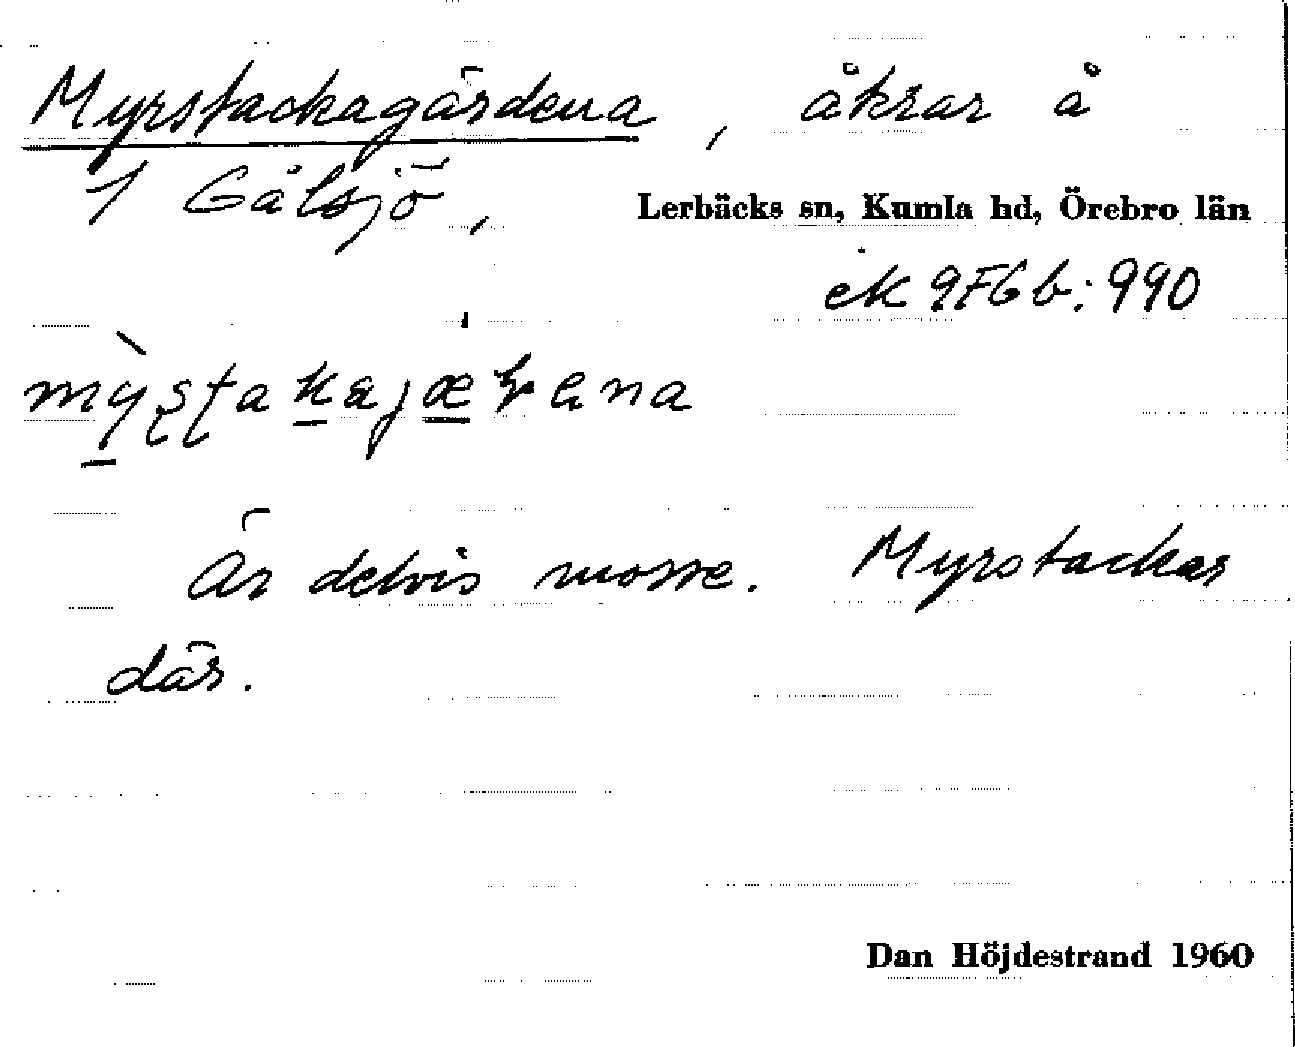 Myrstackagärdena, åkrar å
1 Gålsjö, Lerbäcks sn, Kumla hd, Örebro län
ek 9F6b:990
Är delvis mosse. Myrstackar
där.
Dan Höjdestrand 1960